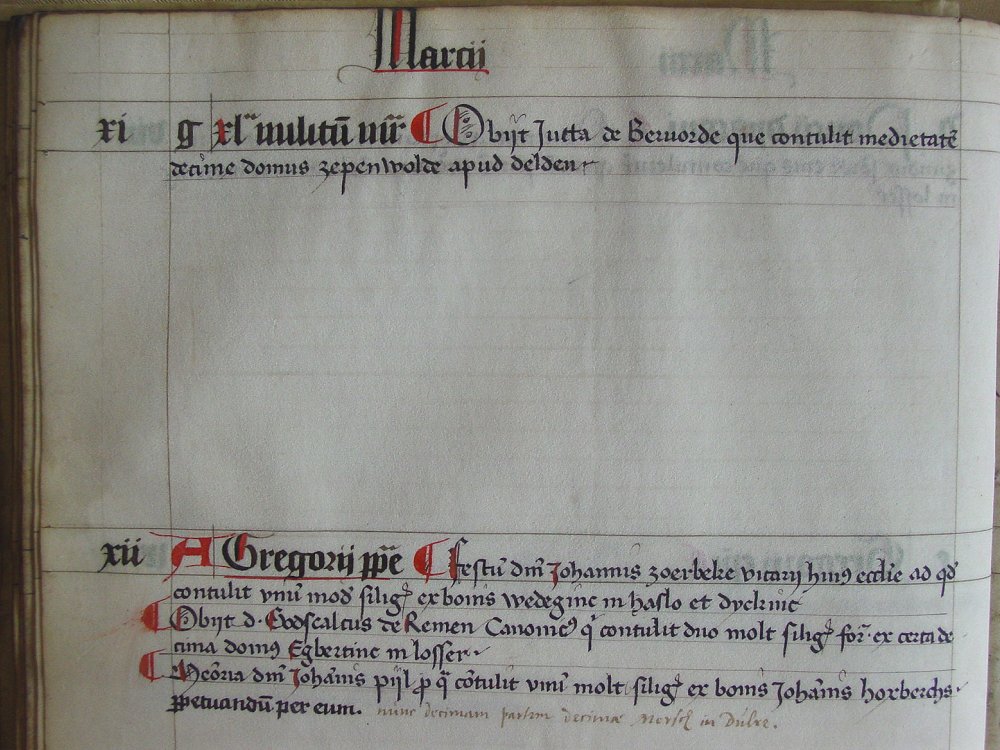 Marcii
xi g xl militū mr̄m ¶ Obijt Jutta de Beruorde que contulit medietatē
decime domus zepenwolde apud delden
xii A Gregorij ppe ¶ festū dn̄i Johannis zoerbeke vicarij huiꝰ ecclie ad qd
contulit vnū mod siligī ex bonis wedeginc in haslo et dyckinc
Obijt d. Godscalcus de Remen Canonicꝰ qi contulit duo molt siligī for ex certa de
cima domꝰ Egbertinc in losser
Meōria dn̄i Johānis pijl p q cōtulit vnū molt siligī ex bonis Johānis horberchs
ppetuandū per eum. nunc decimam partem decimæ in Dulre.